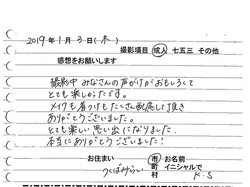 2019年1月3日(木)
撮影項目 成人 七五三 その他
感想をお願いします
撮影中みなさんの声がけがおもしろくて
とても楽しかったです。
メイクも着つけもたくさん配慮して頂き
ありがとうございました。
とても楽しい思い出になりました。
本当にありがとうございました!
お住まい 市 お名前
つくばみらい 町 イニシャルで
村 K.S